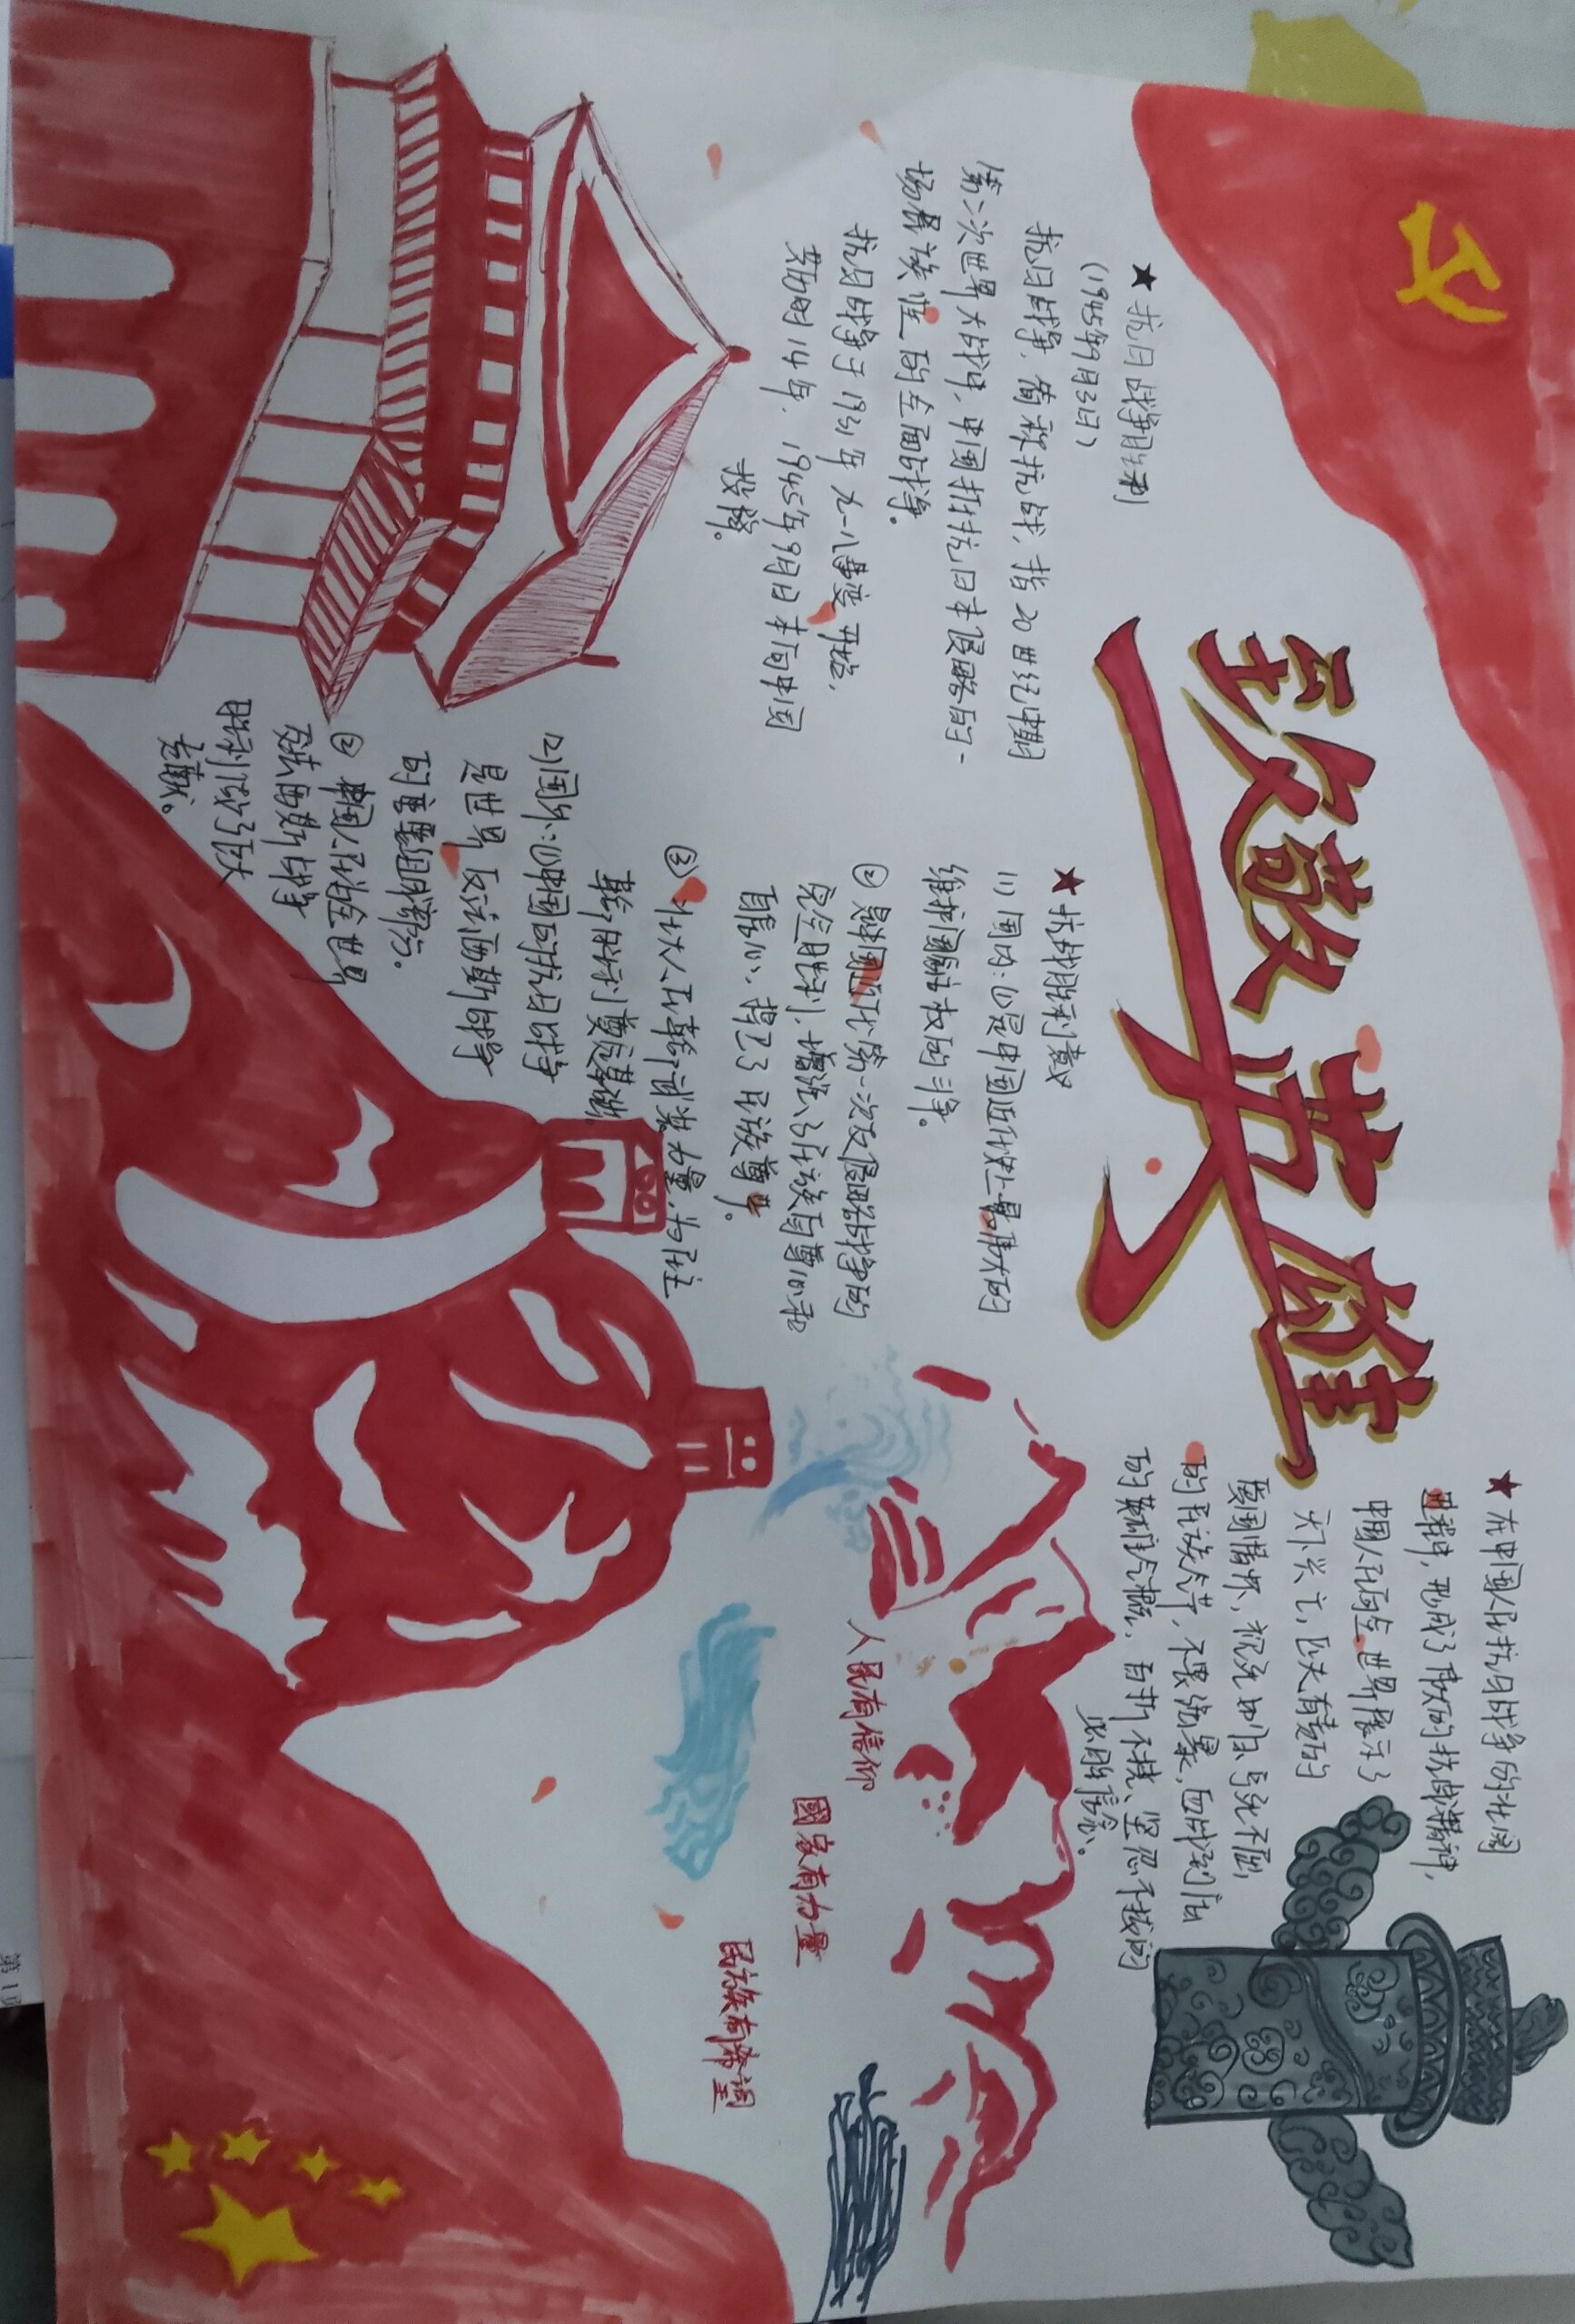 致敬英雄
★ 抗日战争胜利
(1945年9月3日)
抗日战争，简称抗战，指20世纪中期
第二次世界大战中，中国抵抗日本侵略的一
场民族性的全面战争。
抗日战争于1931年九一八事变开始，
共历时14年，1945年9月日本向中国
投降。
★ 抗战胜利意义
(1) 国内：①是中国近代史上最伟大的
维护国家主权的斗争。
② 是中国近代第一次反侵略战争的
完全胜利，增强了民族自尊心和
自信心，捍卫了民族尊严。
③ 壮大人民革命力量，为民主
革命胜利奠定基础。
(2) 国外：①中国的抗日战争
是世界反法西斯战争
的重要组成部分。
② 中国人民为全世界
反法西斯战争
胜利做了巨大
贡献。
★ 在中国人民抗日战争的壮阔
进程中，形成了伟大的抗战精神，
中国人民向世界展示了
天下兴亡，匹夫有责的
爱国情怀，视死如归、宁死不屈
的民族气节，不畏强暴，血战到底
的英雄气概，百折不挠、坚忍不拔的
必胜信念。
人民有信仰
國家有力量
民族有希望
第1页